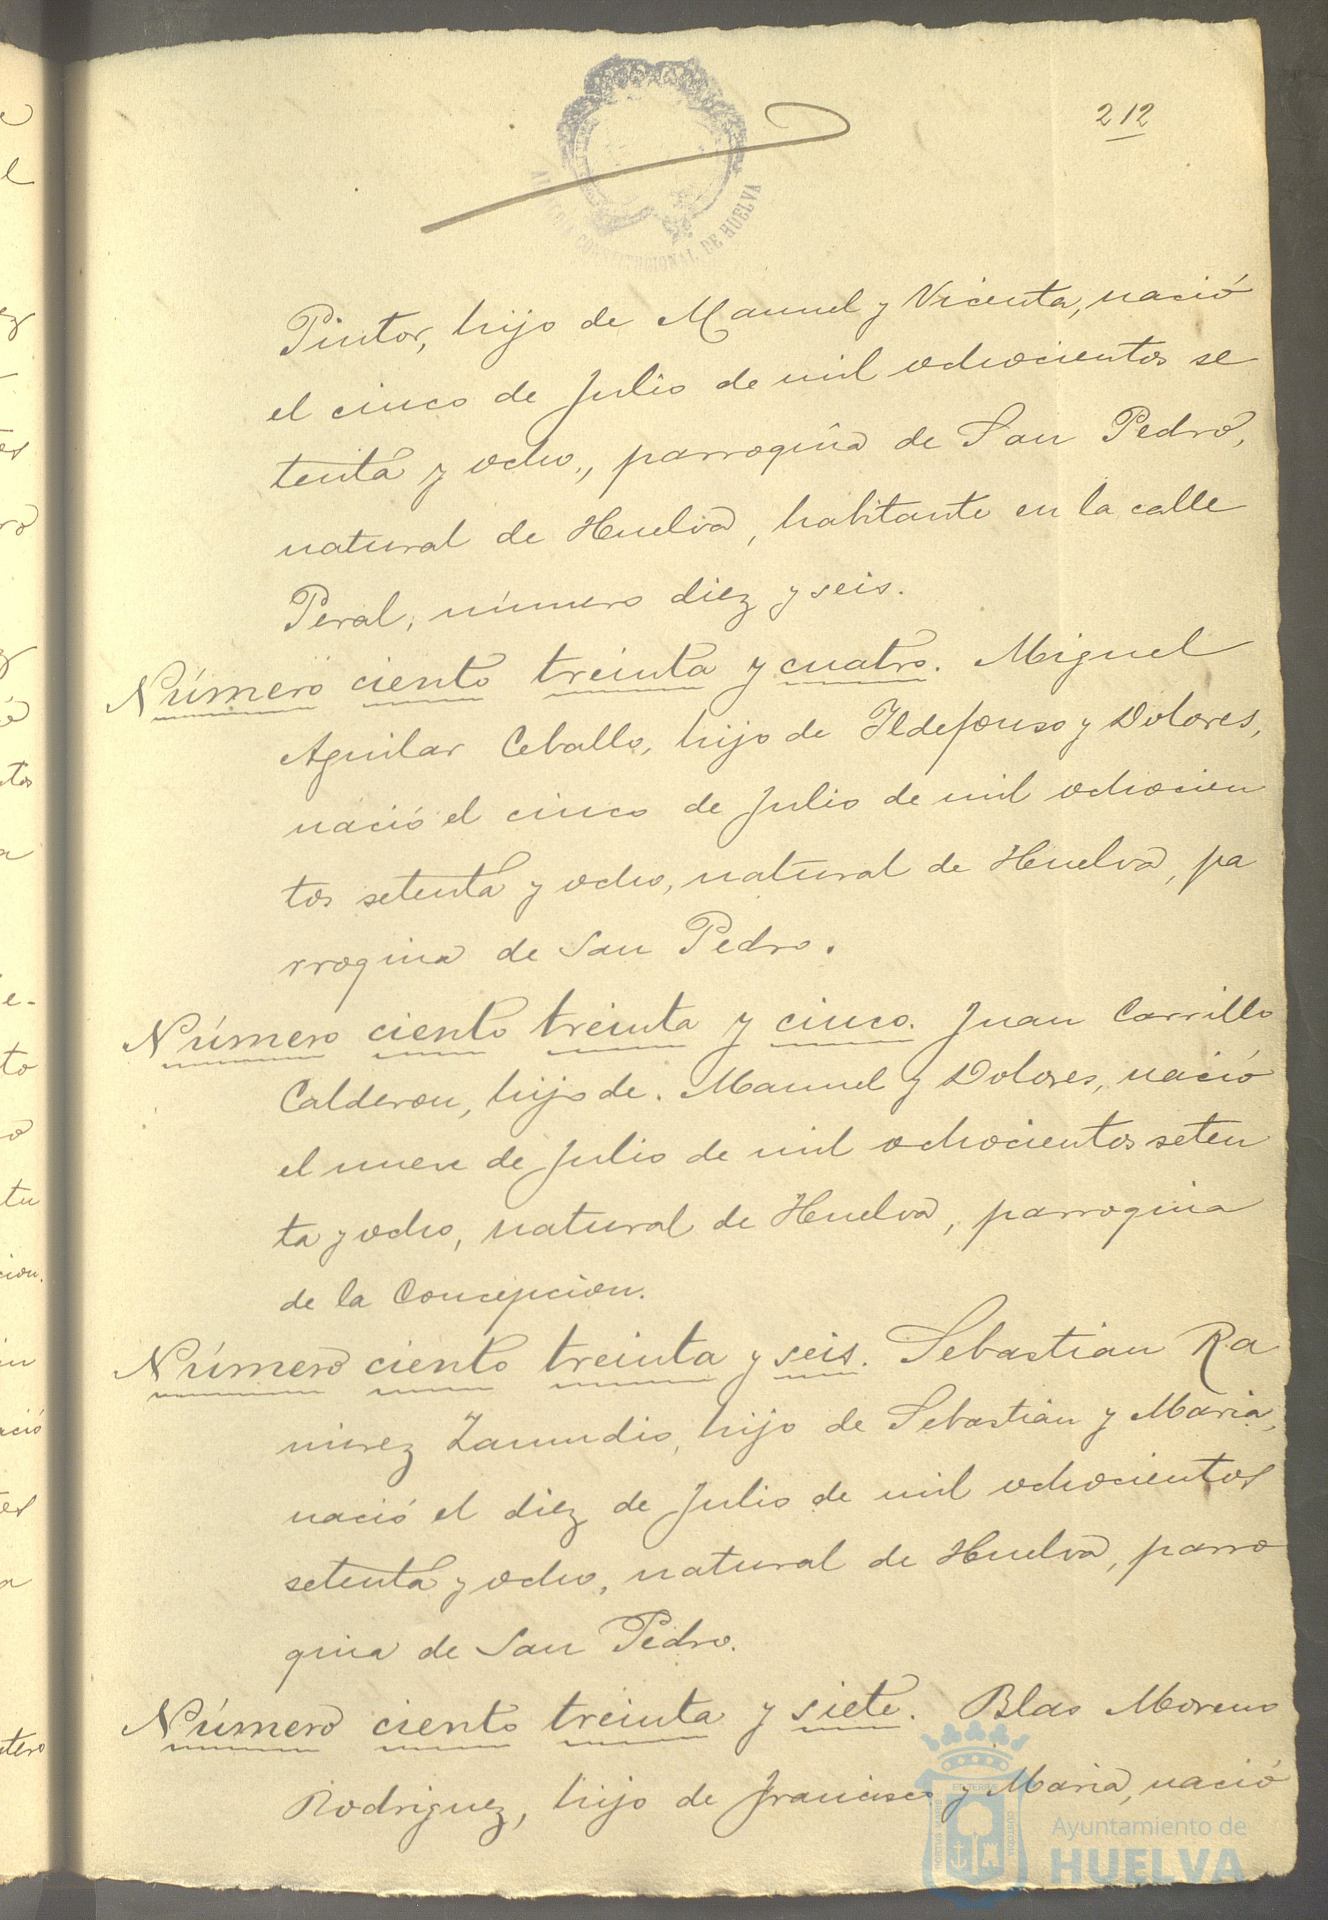 212
ALCALDIA CONSTITUCIONAL DE HUELVA
Pintor, hijo de Manuel y Vicenta, nació
el cinco de Julio de mil ochocientos se
tenta y ocho, parroquia de San Pedro,
natural de Huelva, habitante en la calle
Peral, número diez y seis.
Número ciento treinta y cuatro. Miguel
Aguilar Ceballo, hijo de Ildefonso y Dolores,
nació el cinco de Julio de mil ochocien
tos setenta y ocho, natural de Huelva, pa
rroquia de San Pedro.
Número ciento treinta y cinco. Juan Carrillo
Calderon, hijo de Manuel y Dolores, nació
el nueve de Julio de mil ochocientos seten
ta y ocho, natural de Huelva, parroquia
de la Concepcion.
Número ciento treinta y seis. Sebastián Ra
mirez Zamudio, hijo de Sebastián y Maria,
nació el diez de Julio de mil ochocientos
setenta y ocho, natural de Huelva, parro
quia de San Pedro.
Número ciento treinta y siete. Blas Moreno
Rodriguez, hijo de Francisco y Maria, nació
Ayuntamiento de
HUELVA